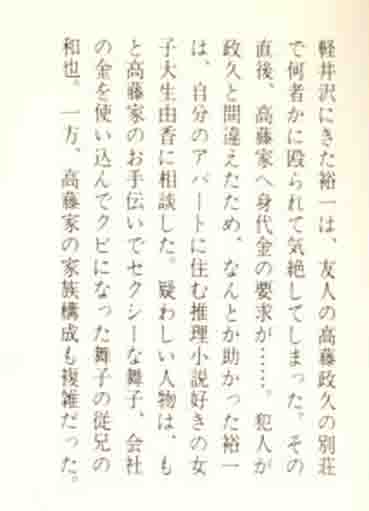 軽井沢にきた裕一は、友人の高藤政久の別荘
で何者かに殴られて気絶してしまった。その
直後、高藤家へ身代金の要求が……。犯人が
政久と間違えたため、なんとか助かった裕一
は、自分のアパートに住む推理小説好きの女
子大生由香に相談した。疑わしい人物は、も
と高藤家のお手伝いでセクシーな舞子、会社
の金を使い込んでクビになった舞子の従兄の
和也。一方、高藤家の家族構成も複雑だった。